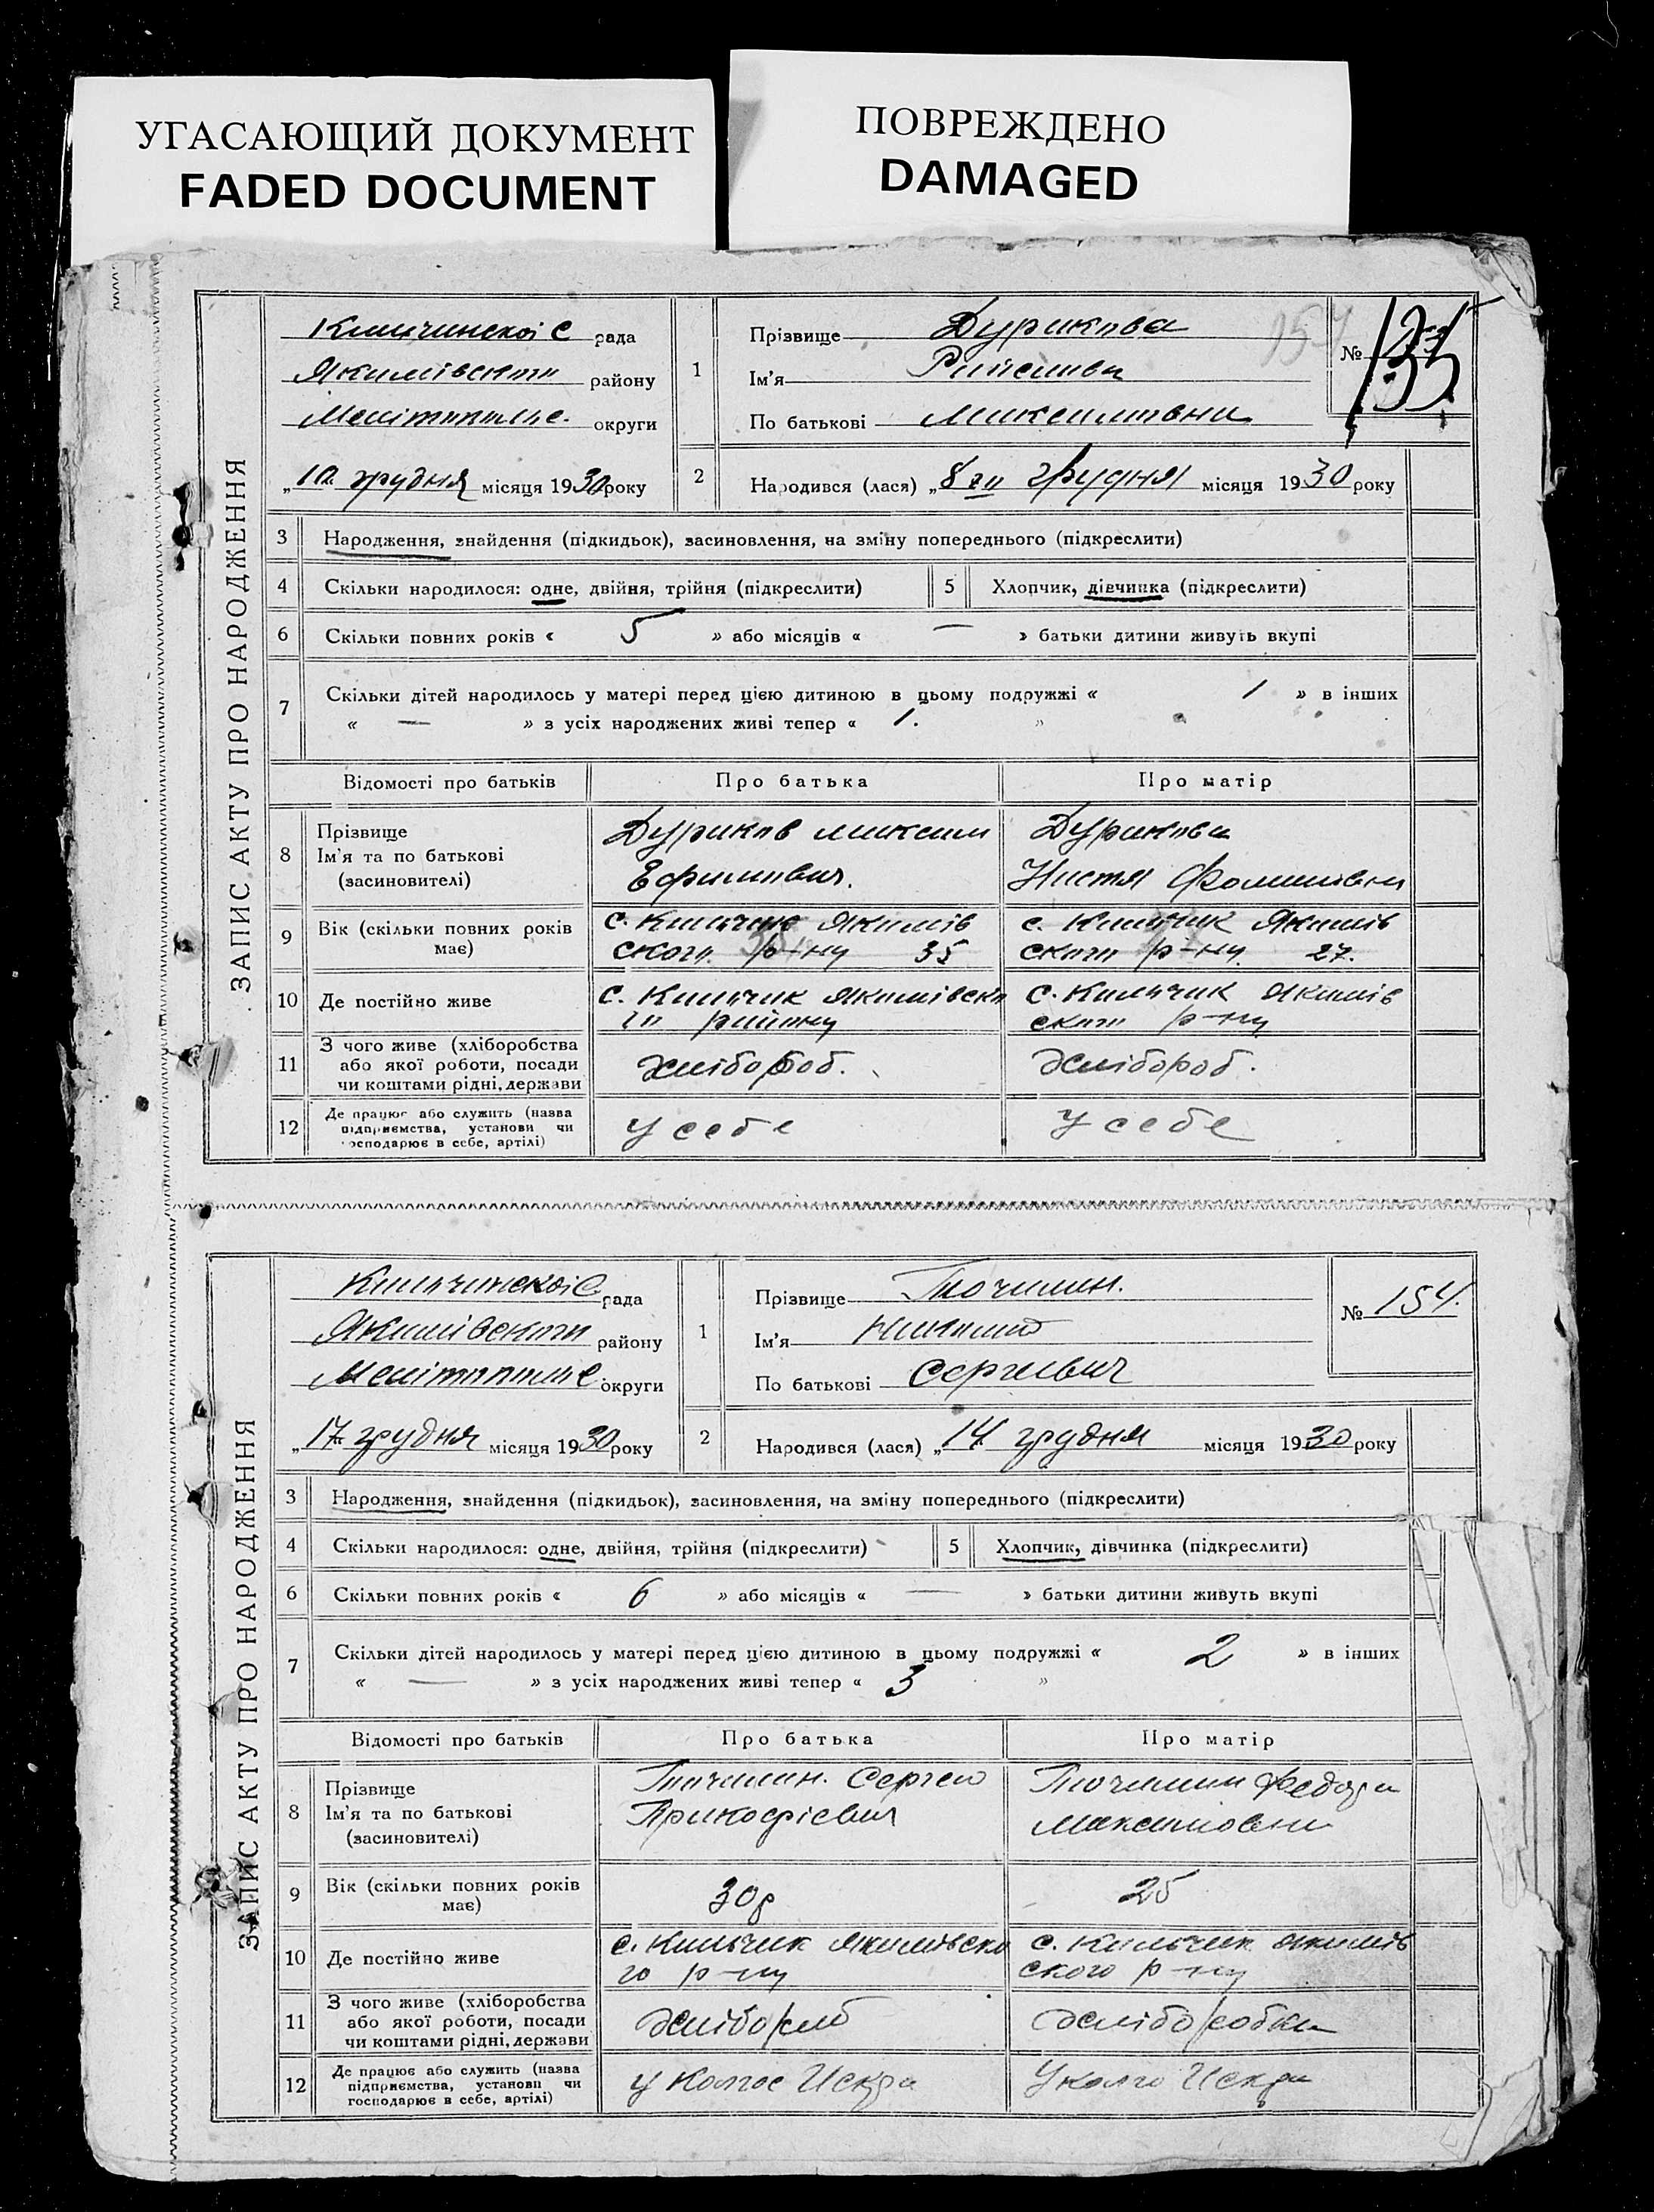 УГАСАЮЩИЙ ДОКУМЕНТ
FADED DOCUMENT
ПОВРЕЖДЕНО
DAMAGED
ЗАПИС АКТУ ПРО НАРОДЖЕННЯ
рада
Якимівського району
округи
„10 грудня місяця 1930 року
1
Прізвище Дурикова
Ім'я
По батькові Максимовна
№
2
Народився (лася) „8 го грудня місяця 1930 року
3 Народження, знайдення (підкидьок), засиновлення, на зміну попереднього (підкреслити)
4 Скільки народилося: одне, двійня, трійня (підкреслити)
5 Хлопчик, дівчинка (підкреслити)
6 Скільки повних років « 5 » або місяців « — » батьки дитини живуть вкупі
7 Скільки дітей народилось у матері перед цією дитиною в цьому подружжі « 1 » в інших
« — » з усіх народжених живі тепер « 1. »
Відомості про батьків Про батька Про матір
8 Прізвище
Ім'я та по батькові
(засновителі)
Дуриков Максим
Ефимович.
Дурикова
Настя Фоминівна
9 Вік (скільки повних років
має)
с. Кильчик Якимів
ского р-ну 35
с. Кильчик Якимів
ского р-ну. 27.
10 Де постійно живе
с. Кильчик Якимівско
го району
с. Кильчик Якимів
ского р-ну
11 З чого живе (хліборобства
або якої роботи, посади
чи коштами рідні, держави
хлібороб.
хлібороб.
12 Де працює або служить (назва
підприємства, установи чи
господарює в себе, артілі)
у себе
у себе
ЗАПИС АКТУ ПРО НАРОДЖЕННЯ
рада
Якимівського району
округи
„17 грудня місяця 1930 року
1
Прізвище Точилин.
Ім'я
По батькові Сергиевич
№ 154.
2
Народився (лася) „14 грудня місяця 1930 року
3 Народження, знайдення (підкидьок), засиновлення, на зміну попереднього (підкреслити)
4 Скільки народилося: одне, двійня, трійня (підкреслити)
5 Хлопчик, дівчинка (підкреслити)
6 Скільки повних років « 6 » або місяців « — » батьки дитини живуть вкупі
7 Скільки дітей народилось у матері перед цією дитиною в цьому подружжі « 2 » в інших
« — » з усіх народжених живі тепер « 3 »
Відомості про батьків Про батька Про матір
8 Прізвище
Ім'я та по батькові
(засиновителі)
Точилин. Сергей
Точилин Федора
Максимовна
9 Вік (скільки повних років
має)
30р
25
10 Де постійно живе
с. Кильчик Якимівско
го р-ну
с. Кильчик Якимів
ского р-ну
11 З чого живе (хліборобства
або якої роботи, посади
чи коштами рідні, держави
хлібороб
хліборобка
12 Де працює або служить (назва
підприємства, установи чи
господарює в себе, артілі)
у колгос Искра
У колго Искра